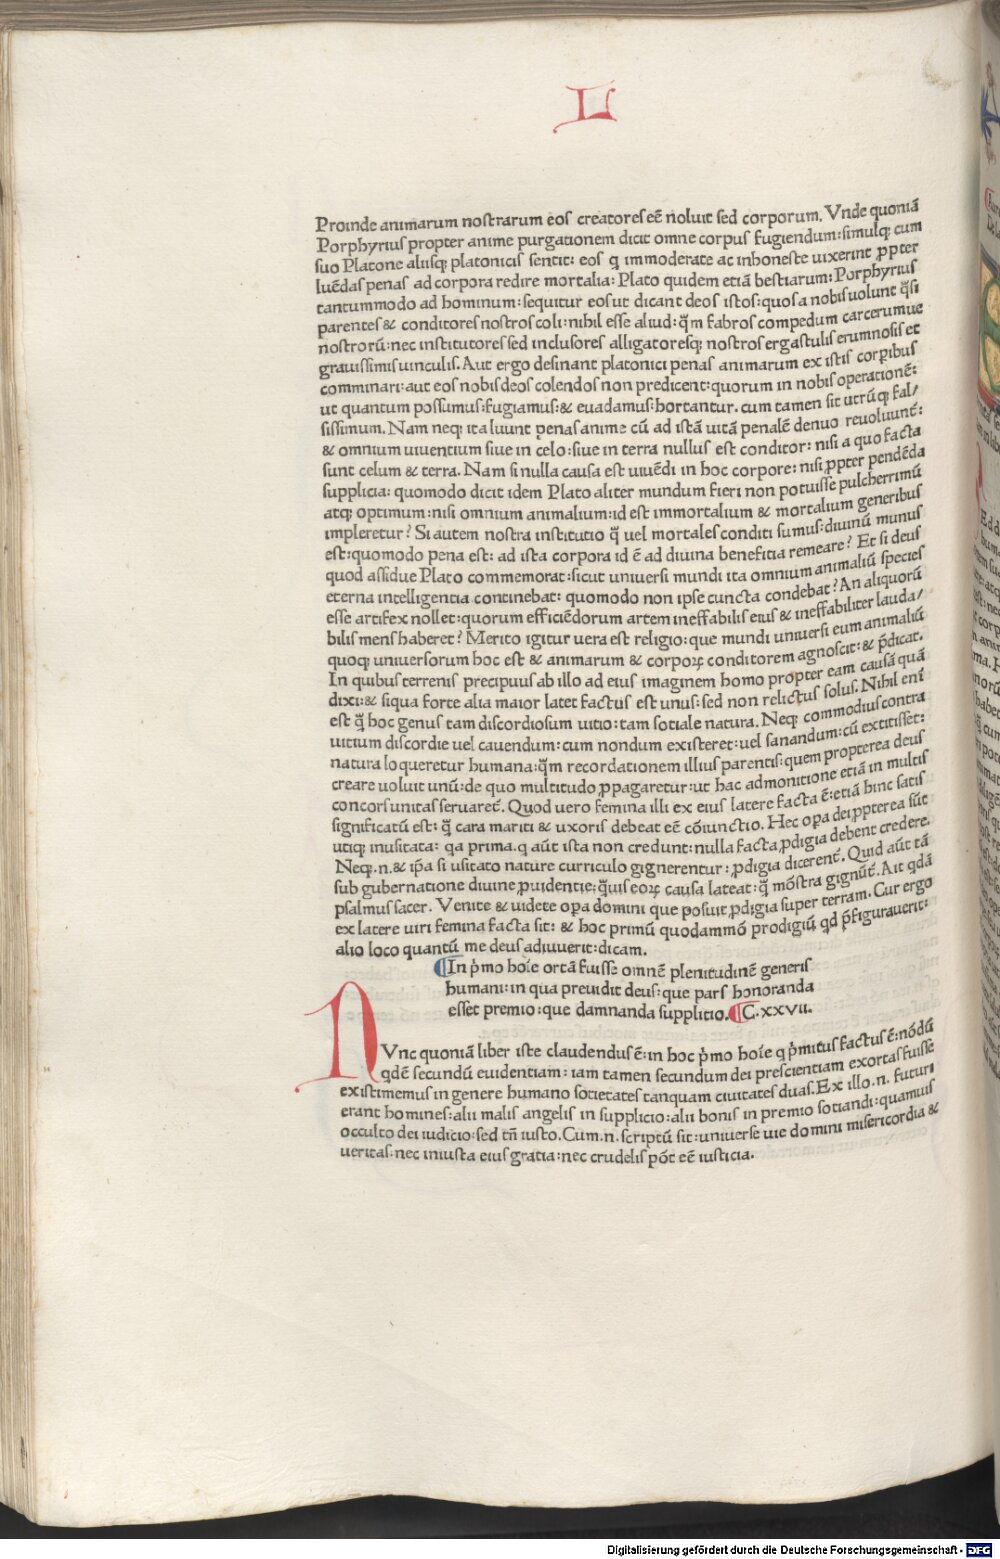 L
Proinde animarum nostrarum eos creatores eē noluit sed corporum. Vnde quoniā
Porphyrius propter anime purgationem dicit omne corpus fugiendum: simulqꝫ cum
suo Platone aliisqꝫ platonicis sentit: eos q immoderate ac inhoneste uixerint ꝓpter
luēdas penas ad corpora redire mortalia: Plato quidem etiā bestiarum: Porphyrius
tantummodo ad hominum: sequitur eos ut dicant deos istos: quos a nobis uolunt q̄si
parentes & conditores nostros coli: nihil esse aliud: q̄m fabros compedum carcerumue
nostrorū: nec institutores sed inclusores alligatoresqꝫ nostros ergastulis erumnosis et
grauissimis uinculis. Aut ergo desinant platonici penas animarum ex istis corꝑibus
comminari: aut eos nobis deos colendos non predicent: quorum in nobis operationē:
ut quantum possumus: fugiamus: & euadamus: hortantur. cum tamen sit utrūqꝫ fal/
sissimum. Nam neqꝫ ita luunt penas anime cū ad istā uitā penalē denuo reuoluunt̄:
& omnium uiuentium siue in celo: siue in terra nullus est conditor: nisi a quo facta
sunt celum & terra. Nam si nulla causa est uiuēdi in hoc corpore: nisi ꝓpter pendēda
supplicia: quomodo dicit idem Plato aliter mundum fieri non potuisse pulcherrimū
atqꝫ optimum: nisi omnium animalium: id est immortalium & mortalium generibus
impleretur? Si autem nostra institutio q̄ uel mortales conditi sumus: diuinū munus
est: quomodo pena est: ad ista corpora id ē ad diuina beneficia remeare? Et si deus
quod assidue Plato commemorat: sicut uniuersi mundi ita omnium animaliū species
eterna intelligentia continebat: quomodo non ipse cuncta condebat? An aliquorū
esse artifex nollet: quorum efficiēdorum artem ineffabilis eius & ineffabiliter lauda/
bilis mens haberet? Merito igitur uera est religio: que mundi uniuersi eum animaliū
quoqꝫ uniuersorum hoc est & animarum & corpoꝝ conditorem agnoscit: & p̄dicat.
In quibus terrenis precipuus ab illo ad eius imaginem homo propter eam causā quā
dixi: & siqua forte alia maior latet factus est unus: sed non relictus solus. Nihil eni
est q̄ hoc genus tam discordiosum uitio: tam sociale natura. Neqꝫ commodius contra
uitium discordie uel cauendum: cum nondum existeret: uel sanandum: cū extitisset:
natura loqueretur humana: q̄m recordationem illius parentis: quem propterea deus
creare uoluit unū: de quo multitudo ꝓpagaretur: ut hac admonitione etiā in multis
concors unitas seruaret̄. Quod uero femina illi ex eius latere facta ē: etiā hinc satis
significatū est: q̄ cara mariti & uxoris debeat eē cōiunctio. Hec oꝑa dei ꝓpterea sūt
utiqꝫ inusitata: qa prima. q aūt ista non credunt: nulla facta ꝓdigia debent credere.
Neqꝫ .n. & ip̄a si usitato nature curriculo gignerentur: ꝓdigia dicerent̄. Quid aūt tā
sub gubernatione diuine ꝓuidentie: q̄uis eoꝝ causa lateat: q̄ mōstra gignūt. Ait qdā
psalmus sacer. Venite & uidete oꝑa domini que posuit ꝓdigia super terram. Cur ergo
ex latere uiri femina facta sit: & hoc primū quodammō prodigiū qd p̄figurauerit:
alio loco quantū me deus adiuuerit: dicam.
¶In p̄mo hoīe ortā fuisse omnē plenitudinē generis
humani: in qua preuidit deus: que pars honoranda
esset premio: que damnanda supplicio. ¶C. xxvii.
NVnc quoniā liber iste claudendus ē: in hoc p̄mo hoīe q p̄mitus factus ē: nōdū
qdē secundū euidentiam: iam tamen secundum dei prescientiam exortas fuisse
existimemus in genere humano societates tanquam ciuitates duas. Ex illo .n. futuri
erant homines: alii malis angelis in supplicio: alii bonis in premio sociandi: quamuis
occulto dei iudicio: sed tn̄ iusto. Cum .n. scriptū sit: uniuerse uie domini misericordia &
ueritas: nec iniusta eius gratia: nec crudelis pōt eē iusticia.
Digitalisierung gefördert durch die Deutsche Forschungsgemeinschaft - DFG